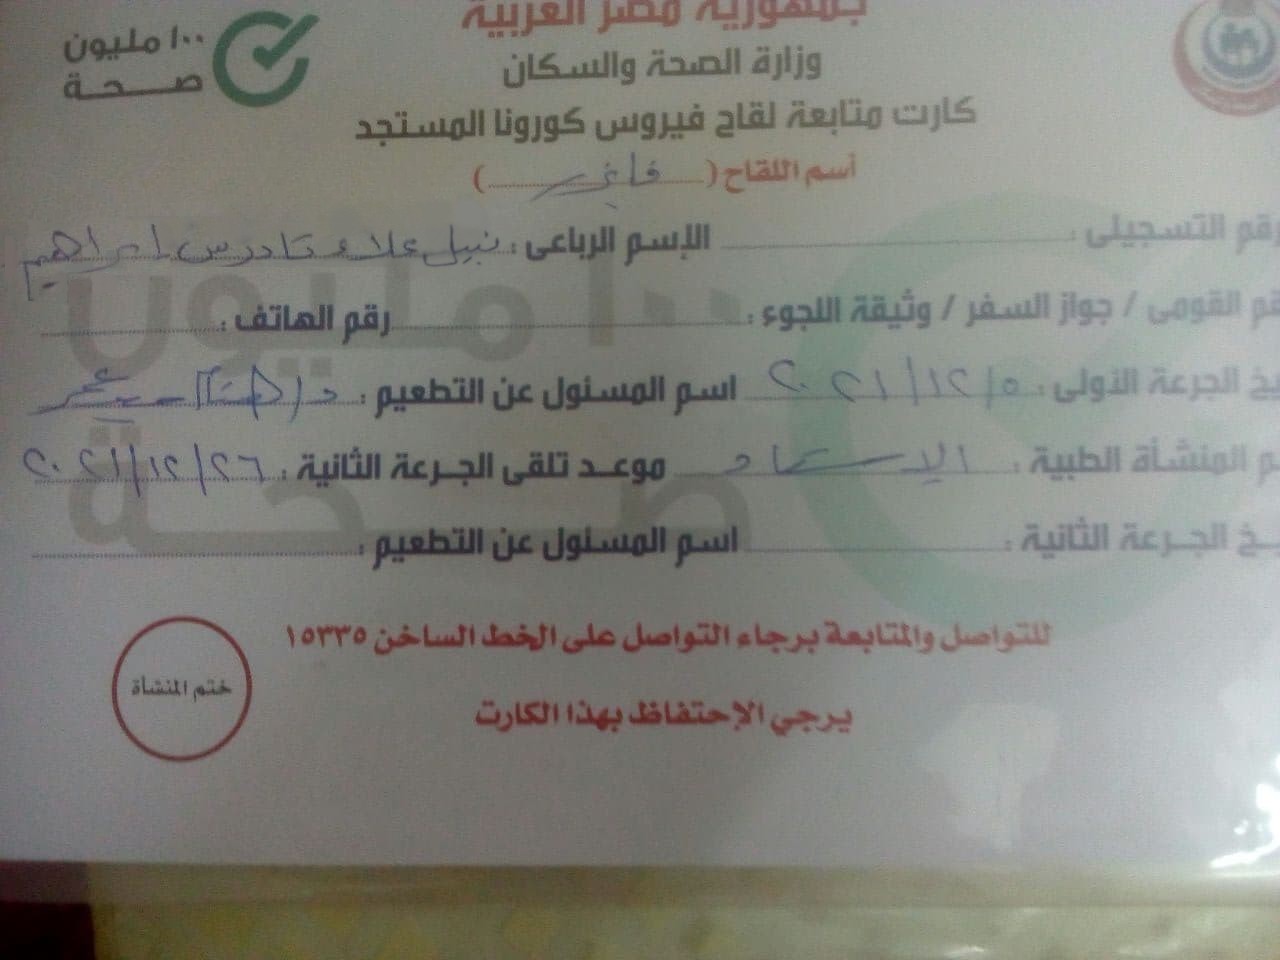 جمهورية مصر العربية
١٠٠ مليون
صحة
وزارة الصحة والسكان
كارت متابعة لقاح فيروس كورونا المستجد
أسم اللقاح (فايزر)
رقم التسجيلى : الإسم الرباعى : نبيل علاء تادرس ابراهيم
القومى / جواز السفر / وثيقة اللجوء : رقم الهاتف :
الجرعة الأولى : ٥ / ١٢ / ٢٠٢١ اسم المسئول عن التطعيم : د /
المنشأة الطبية : الاستاد موعد تلقى الجرعة الثانية : ٢٦ / ١٢ / ٢٠٢١
الجرعة الثانية : اسم المسئول عن التطعيم :
للتواصل والمتابعة برجاء التواصل على الخط الساخن ١٥٣٣٥
ختم المنشأة
يرجي الإحتفاظ بهذا الكارت